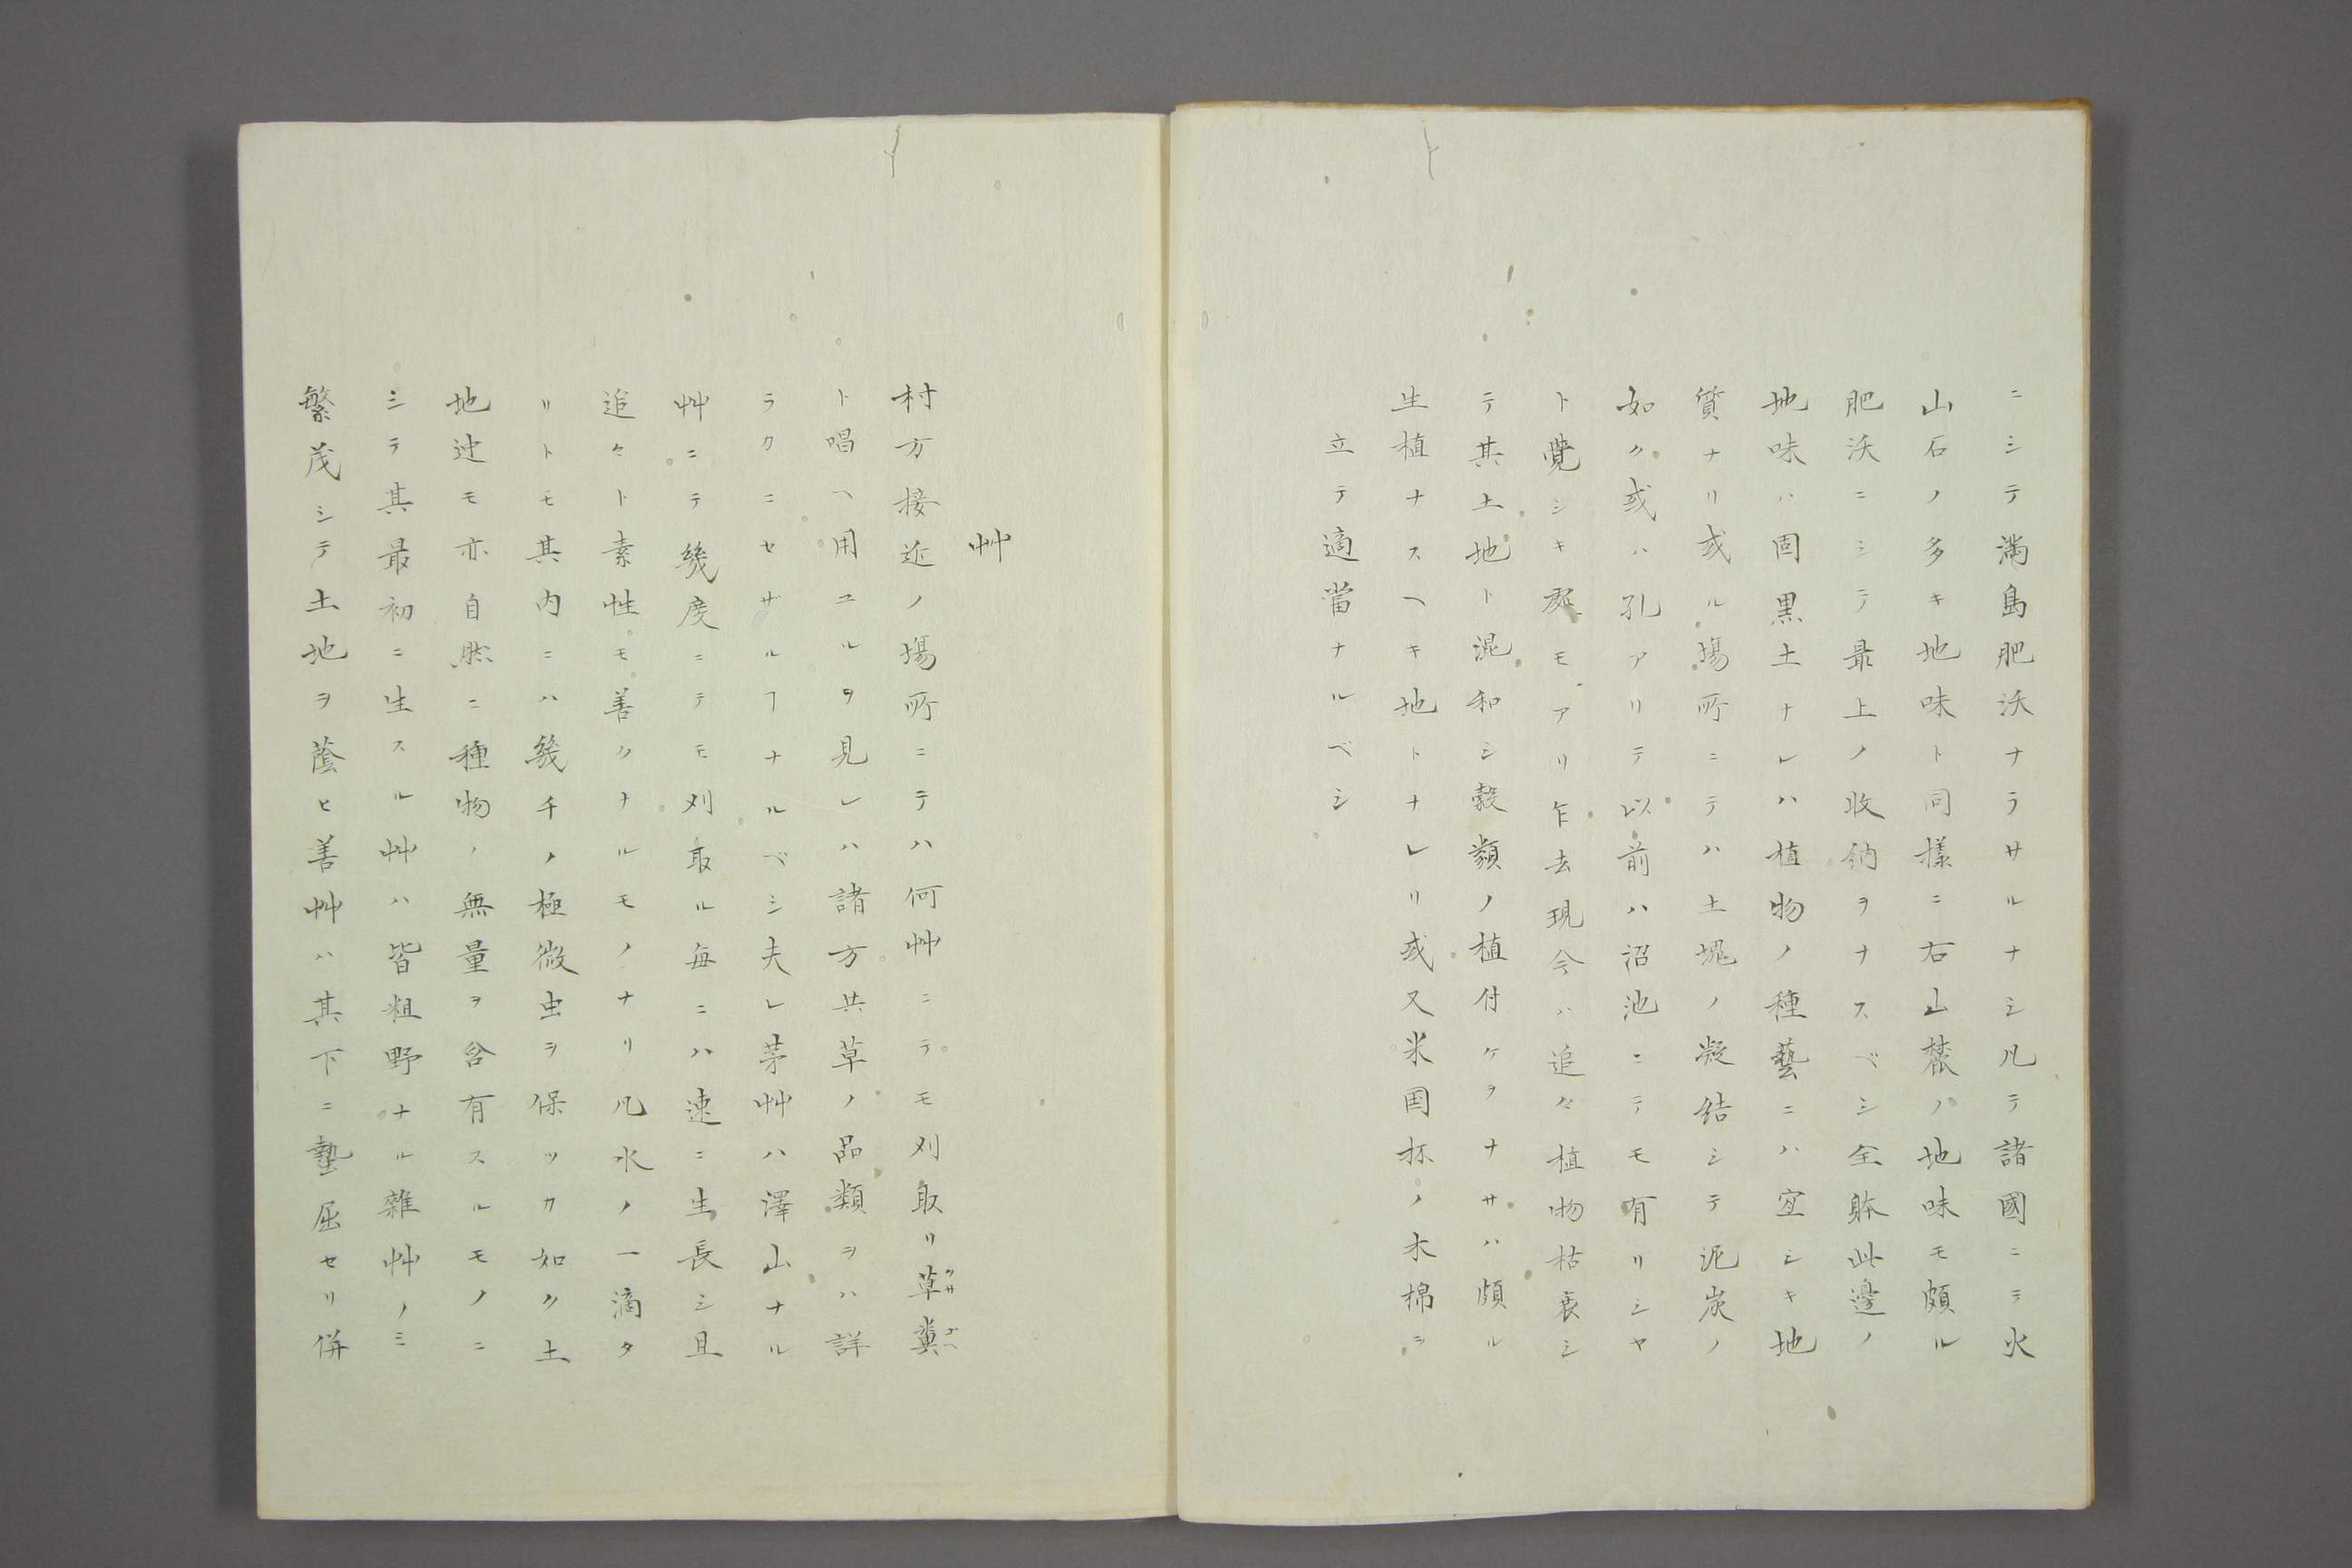 ニシテ満島肥沃ナラサルナシ凡テ諸國ニテ火
山石ノ多キ地味ト同様ニ右山麓ノ地味モ頗ル
肥沃ニシテ最上ノ收納ヲナスベシ全躰此邊ノ
地味ハ固黒土ナレハ植物ノ種藝ニハ宜シキ地
質ナリ或ル塲所ニテハ土塊ノ凝結シテ泥炭ノ
如ク或ハ孔アリテ以前ハ沼池ニテモ有リシヤ
ト覺シキ處モアリ乍去現今ハ追々植物枯衰シ
テ其土地ト混和シ穀類ノ植付ケヲナサハ頗ル
生植ナスヘキ地トナレリ或又米国抔ノ木棉ニ
立テ適當ナルベシ
艸
村方接近ノ塲所ニテハ何艸ニテモ刈取リ草糞
ト唱ヘ用ユルヲ見レハ諸方共草ノ品類ヲハ詳
ラカニセザルヿナルベシ夫レ茅艸ハ澤山ナル
艸ニテ幾度ニテモ刈取ル毎ニハ速ニ生長シ且
追々ト素性モ善クナルモノナリ凡水ノ一滴タ
リトモ其内ニハ幾千ノ極微虫ヲ保ツカ如ク土
地迚モ亦自然ニ種物ノ無量ヲ含有スルモノニ
シテ其最初ニ生スル艸ハ皆粗野ナル雜艸ノミ
繁茂シテ土地ヲ蔭ヒ善艸ハ其下ニ蟄屈セリ併